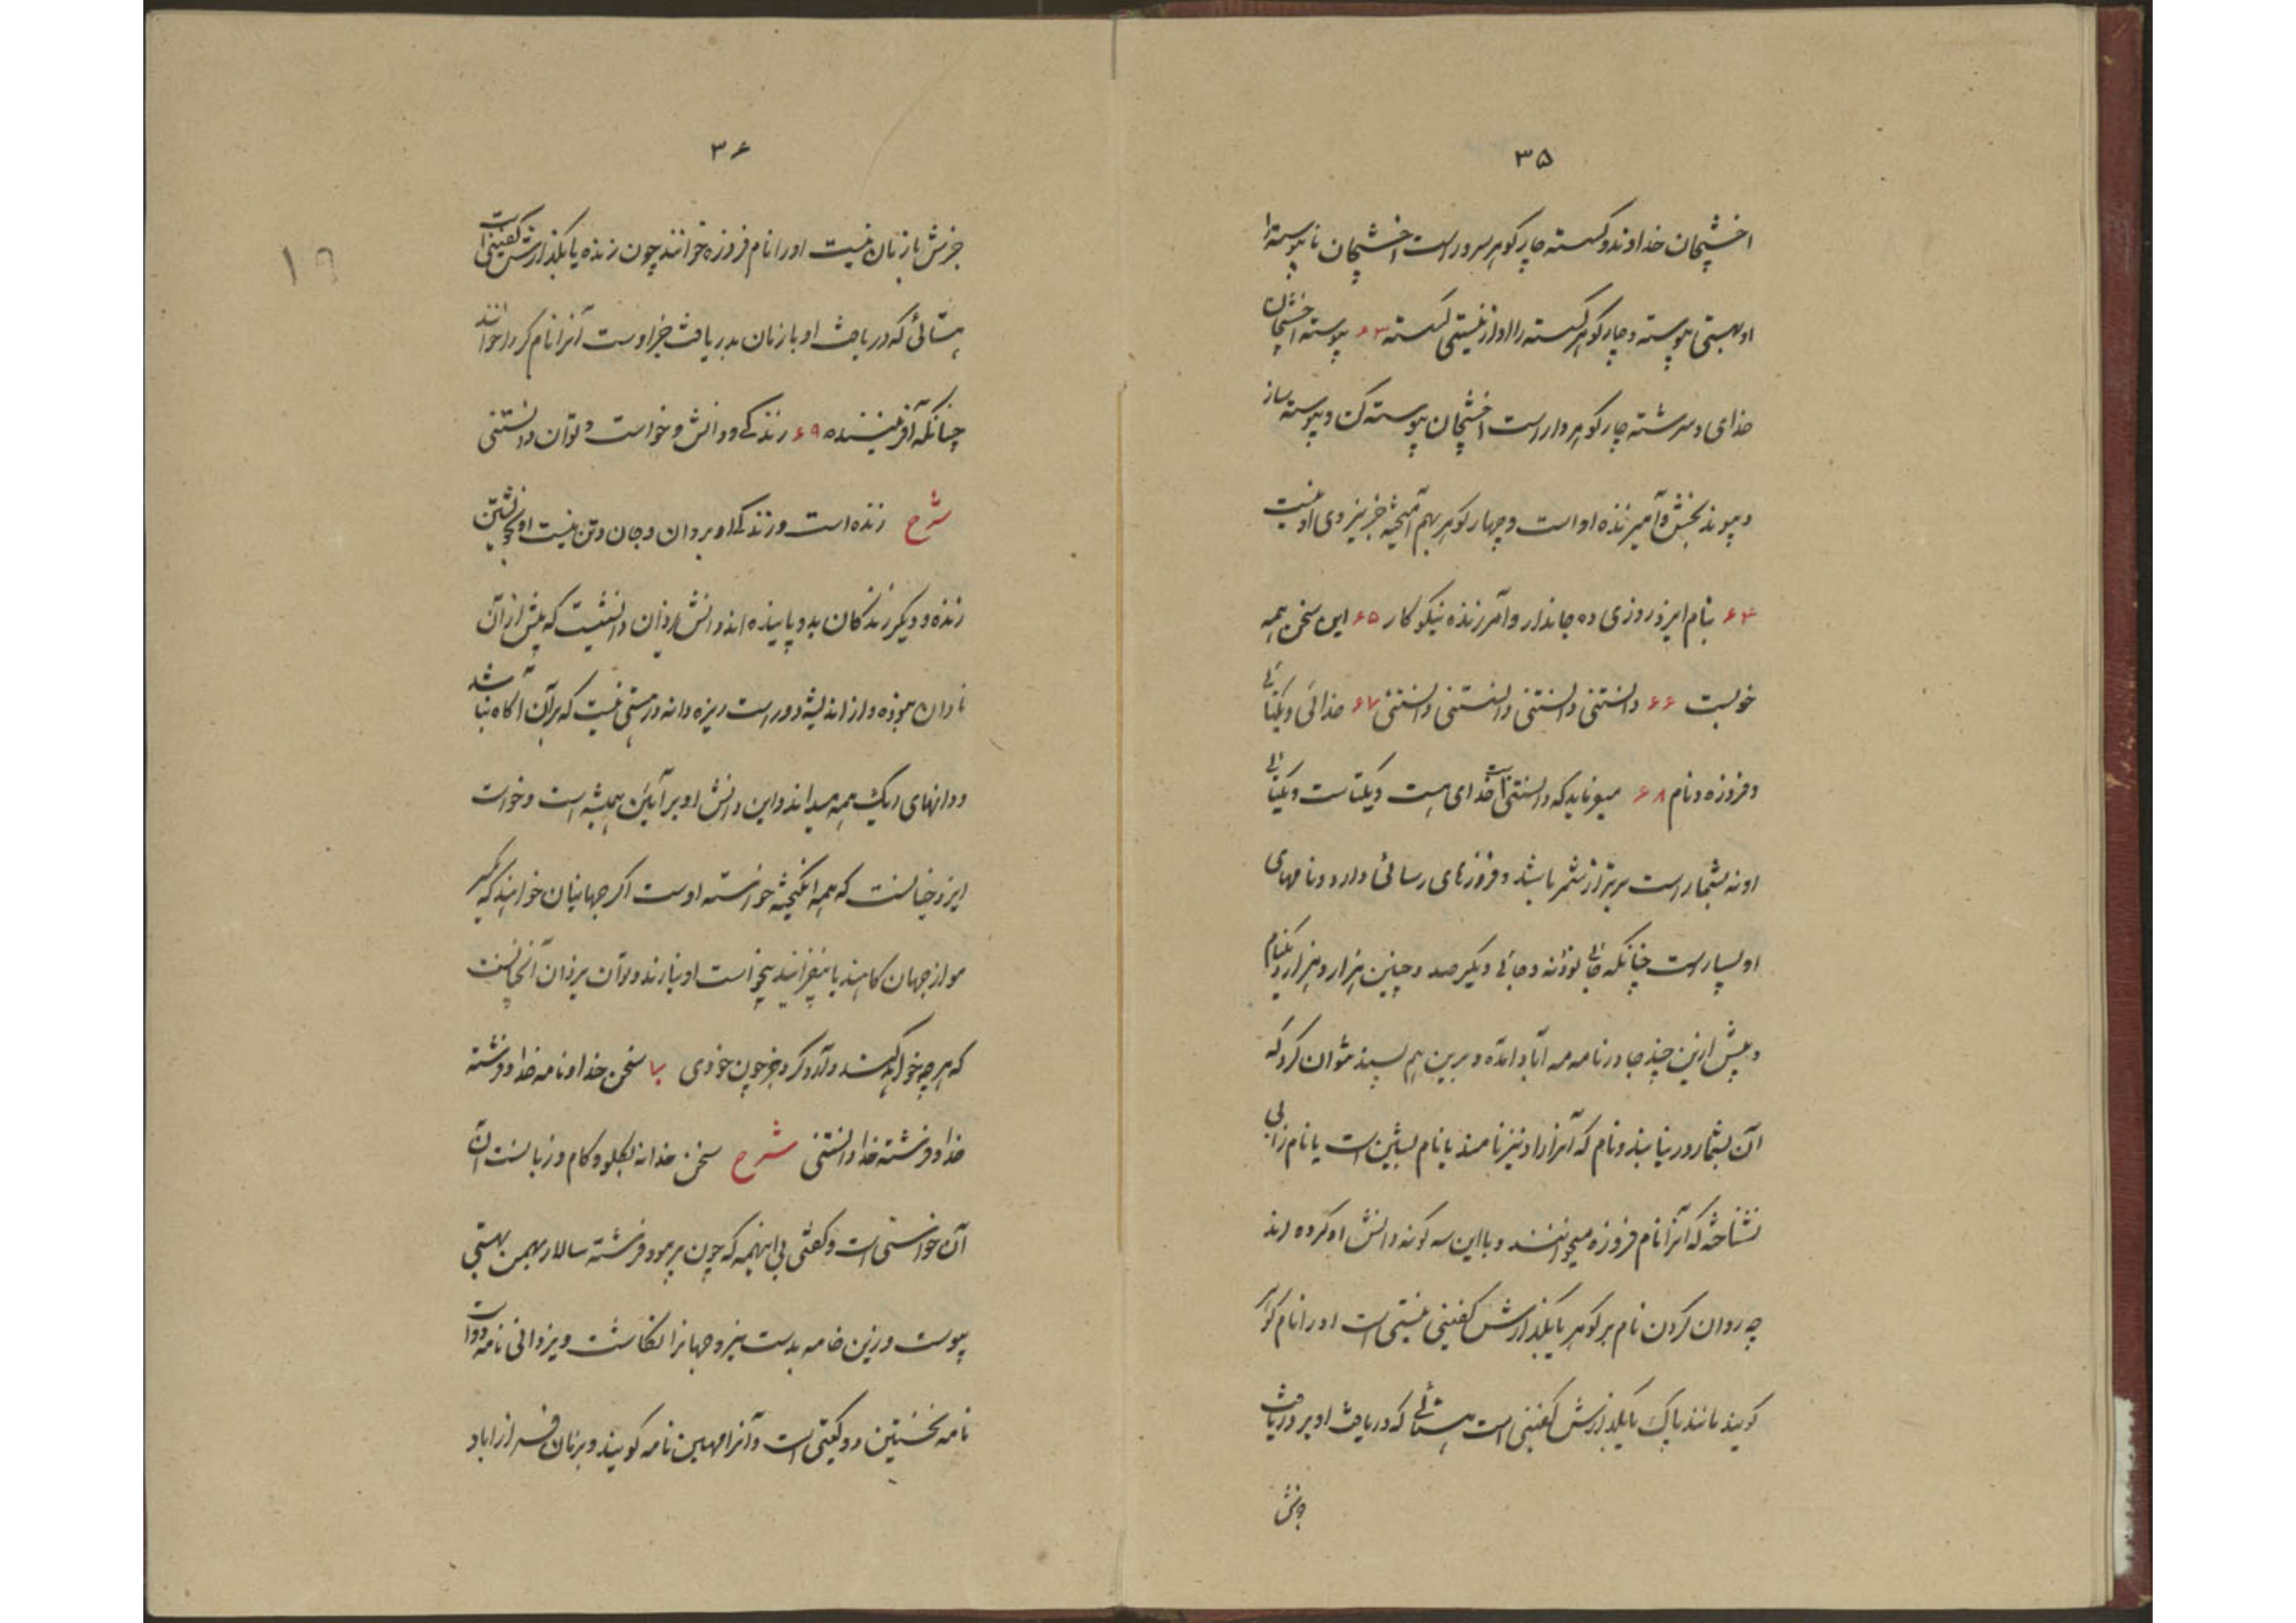 ۳۵
اخشیجان خداوند و کسسته چار کوهر سرور است اخشیجان ناپیوسته را
او بهستی پیوسته و چار کوهر کسسته را او از نیستی کسسته ۶۳ پیوسته اخشیجان
خدای و سرشته چار کوهر دار است اخشیجان پیوسته کن و پیوسته ساز
و پیوند بخش و آمیزنده او است و چهار کوهر بهم آمیخته جز نیروی او نیست
۶۴ بنام ایزد روزی ده جاندار و آمرزنده نیکو کار ۶۵ این سخن همه
خوبست ۶۶ دانستنی دانستنی دانستنی دانستنی ۶۷ خدائی و یکتائی
و فروزه و نام ۶۸ میفرماید که دانستنی است خدای هست و یکتاست و یکتائی
او نه بشمار است برتر از شمر باشد و فروزهای رسائی دارد و نامهای
او بسیار است چنانکه جائی نود نه و جائی دیگر صد و چنین هزار و هزار و یکنام
و پیش ازین چند جا در نامه مه آباد آمده و برین هم بسند نتوان کرد که
آن بشمار در نیاید و نام که آنرا داد نیز نامند یا نام بشین است یا نام زابی
نشناخته که آنرا نام فروزه میخوانند و با این سه کونه دانش او کرده اند
چه روان کردن نام بر کوهر یا بگذارش کفتنی نیستی است او را نام کوهر
کویند مانند پاک یا بگذارش کفتنی است هستائی که دریافت او بر دریافت
جزش
۳۶
جزش باز بان نیست او را نام فروزه خوانند چون زنده یا بگذارش کفتنی است
هستائی که دریافت او باز بان بدریافت جز اوست آنرا نام کردار خوانند
چنانکه آفریننده ۶۹ زندکی و دانش و خواست و توان دانستنی
شرح زنده است و زندکی او بروان و جان و تن نیست او بخویشتن
زنده و دیکر زندکان بدو پاینده اند و دانش یزدان دانشیست که پیش از آن
نادان نبوده و از اندیشه دور است ریزه دانه در هستی نیست که بر آن آکاه نباشد
و دانهای ریک همه میداند و این دانش او بر آئین همیشه است و خواست
ایزد چنانست که همه انکیخته خواسته اوست اکر جهانیان خواهند که یک
مو از جهان کاهند یا بیفزایند بیخواست او نیارند و توان یزدان آنچنانست
که هرچه خواهد کند و تواند کرد جز چون خودی ۷۰ سخن خدا و نامه خدا و فرشته
خدا و فرشته خدا دانستنی شرح سخن خدا نه بکلو و کام و زبانست آن
آن خواستی است و کفتی بی اینهمه که چون بر مود فرشته سالار بهمن بهستی
پیوست و زین خامه بدست نیرو جهانرا نکاشت و یزدانی نامه دو است
نامه نخستین دو کیتی است و آنرا مهین نامه کویند و بزبان فراز اباد
۱۹